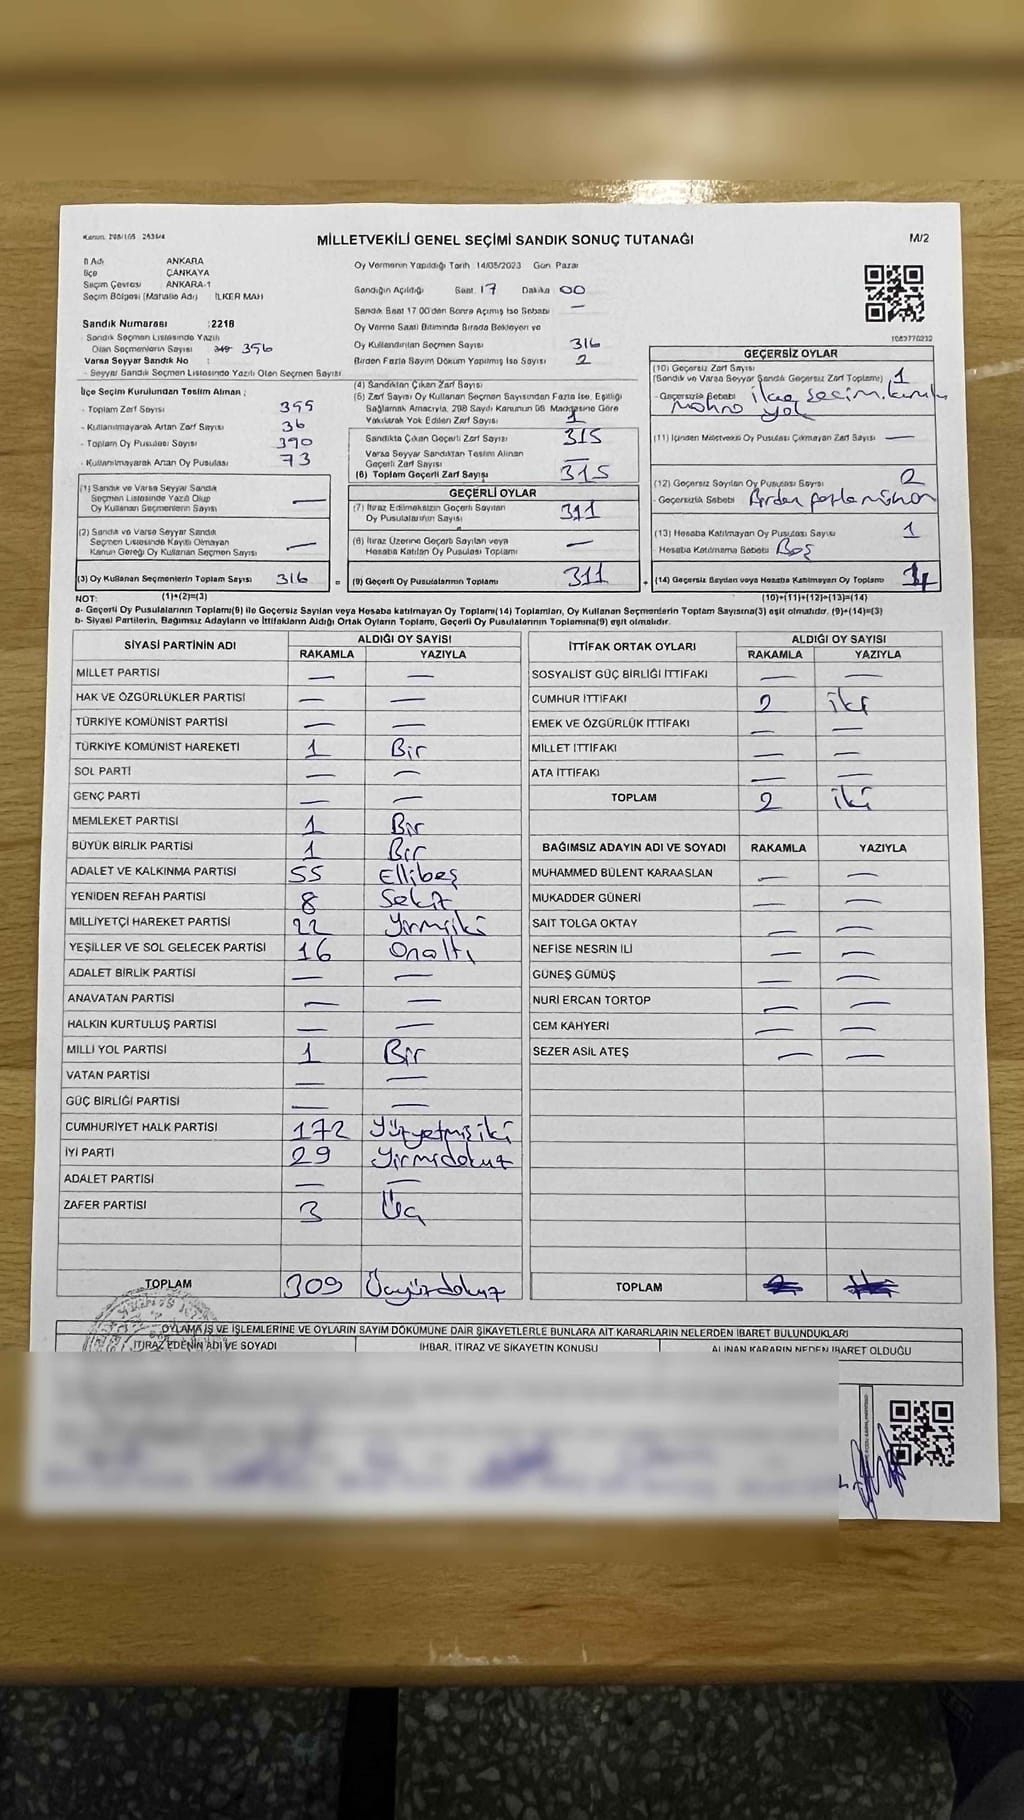 Kanun: 298/105 2839/4
MİLLETVEKİLİ GENEL SEÇİMİ SANDIK SONUÇ TUTANAĞI
M/2
İl Adı ANKARA
İlçe ÇANKAYA
Seçim Çevresi ANKARA-1
Seçim Bölgesi (Mahalle Adı) İLKER MAH
Oy Vermenin Yapıldığı Tarih 14/05/2023 Gün Pazar
Sandığın Açıldığı Saat 17 Dakika 00
Sandık Saat 17.00'den Sonra Açılmış İse Sebebi —
Oy Verme Saati Bitiminde Sırada Bekleyen ve
Oy Kullandırılan Seçmen Sayısı 316
Birden Fazla Sayım Döküm Yapılmış İse Sayısı 2
Sandık Numarası :2218
- Sandık Seçmen Listesinde Yazılı
Olan Seçmenlerin Sayısı 349 356
Varsa Seyyar Sandık No :
- Seyyar Sandık Seçmen Listesinde Yazılı Olan Seçmen Sayısı
İlçe Seçim Kurulundan Teslim Alınan ;
- Toplam Zarf Sayısı 395
- Kullanılmayarak Artan Zarf Sayısı 36
- Toplam Oy Pusulası Sayısı 390
- Kullanılmayarak Artan Oy Pusulası 73
(1) Sandık ve Varsa Seyyar Sandık
Seçmen Listesinde Yazılı Olup
Oy Kullanan Seçmenlerin Sayısı —
(2) Sandık ve Varsa Seyyar Sandık
Seçmen Listesinde Kayıtlı Olmayan
Kanun Gereği Oy Kullanan Seçmen Sayısı —
(3) Oy Kullanan Seçmenlerin Toplam Sayısı 316 =
(4) Sandıktan Çıkan Zarf Sayısı
(5) Zarf Sayısı Oy Kullanan Seçmen Sayısından Fazla İse, Eşitliği
Sağlamak Amacıyla, 298 Sayılı Kanunun 98. Maddesine Göre
Yakılarak Yok Edilen Zarf Sayısı 1
Sandıkta Çıkan Geçerli Zarf Sayısı 315
Varsa Seyyar Sandıktan Teslim Alınan
Geçerli Zarf Sayısı —
(6) Toplam Geçerli Zarf Sayısı 315
GEÇERLİ OYLAR
(7) İtiraz Edilmeksizin Geçerli Sayılan
Oy Pusulalarının Sayısı 311
(8) İtiraz Üzerine Geçerli Sayılan veya
Hesaba Katılan Oy Pusulası Toplamı —
(9) Geçerli Oy Pusulalarının Toplamı 311 +
GEÇERSİZ OYLAR
(10) Geçersiz Zarf Sayısı
(Sandık ve Varsa Seyyar Sandık Geçersiz Zarf Toplamı) 1
- Geçersizlik Sebebi ilçe seçim kurulu
yok
(11) İçinden Milletvekili Oy Pusulası Çıkmayan Zarf Sayısı —
(12) Geçersiz Sayılan Oy Pusulası Sayısı 2
- Geçersizlik Sebebi Birden fazla
(13) Hesaba Katılmayan Oy Pusulası Sayısı 1
Hesaba Katılmama Sebebi Boş
(14) Geçersiz Sayılan veya Hesaba Katılmayan Oy Toplamı 4
NOT: (1)+(2)=(3) (10)+(11)+(12)+(13)=(14)
a- Geçerli Oy Pusulalarının Toplamı(9) ile Geçersiz Sayılan veya Hesaba katılmayan Oy Toplamı(14) Toplamları, Oy Kullanan Seçmenlerin Toplam Sayısına(3) eşit olmalıdır. (9)+(14)=(3)
b- Siyasi Partilerin, Bağımsız Adayların ve İttifakların Aldığı Ortak Oyların Toplamı, Geçerli Oy Pusulalarının Toplamına(9) eşit olmalıdır.
SİYASİ PARTİNİN ADI ALDIĞI OY SAYISI
RAKAMLA YAZIYLA
MİLLET PARTİSİ — —
HAK VE ÖZGÜRLÜKLER PARTİSİ — —
TÜRKİYE KOMÜNİST PARTİSİ — —
TÜRKİYE KOMÜNİST HAREKETİ 1 Bir
SOL PARTİ — —
GENÇ PARTİ — —
MEMLEKET PARTİSİ 1 Bir
BÜYÜK BİRLİK PARTİSİ 1 Bir
ADALET VE KALKINMA PARTİSİ 55 Ellibeş
YENİDEN REFAH PARTİSİ 8 Sekiz
MİLLİYETÇİ HAREKET PARTİSİ 22 Yirmiiki
YEŞİLLER VE SOL GELECEK PARTİSİ 16 Onaltı
ADALET BİRLİK PARTİSİ — —
ANAVATAN PARTİSİ — —
HALKIN KURTULUŞ PARTİSİ — —
MİLLİ YOL PARTİSİ 1 Bir
VATAN PARTİSİ — —
GÜÇ BİRLİĞİ PARTİSİ — —
CUMHURİYET HALK PARTİSİ 172 Yüzyetmişiki
İYİ PARTİ 29 Yirmidokuz
ADALET PARTİSİ — —
ZAFER PARTİSİ 3 Üç
TOPLAM 309 Üçyüzdokuz
İTTİFAK ORTAK OYLARI ALDIĞI OY SAYISI
RAKAMLA YAZIYLA
SOSYALİST GÜÇ BİRLİĞİ İTTİFAKI — —
CUMHUR İTTİFAKI 2 iki
EMEK VE ÖZGÜRLÜK İTTİFAKI — —
MİLLET İTTİFAKI — —
ATA İTTİFAKI — —
TOPLAM 2 iki
BAĞIMSIZ ADAYIN ADI VE SOYADI RAKAMLA YAZIYLA
MUHAMMED BÜLENT KARAASLAN — —
MUKADDER GÜNERİ — —
SAİT TOLGA OKTAY — —
NEFİSE NESRİN İLİ — —
GÜNEŞ GÜMÜŞ — —
NURİ ERCAN TORTOP — —
CEM KAHYERİ — —
SEZER ASİL ATEŞ — —
TOPLAM
OYLAMA İŞ VE İŞLEMLERİNE VE OYLARIN SAYIM DÖKÜMÜNE DAİR ŞİKAYETLERLE BUNLARA AİT KARARLARIN NELERDEN İBARET BULUNDUKLARI
İTİRAZ EDENİN ADI VE SOYADI İHBAR, İTİRAZ VE ŞİKAYETİN KONUSU ALINAN KARARIN NEDEN İBARET OLDUĞU